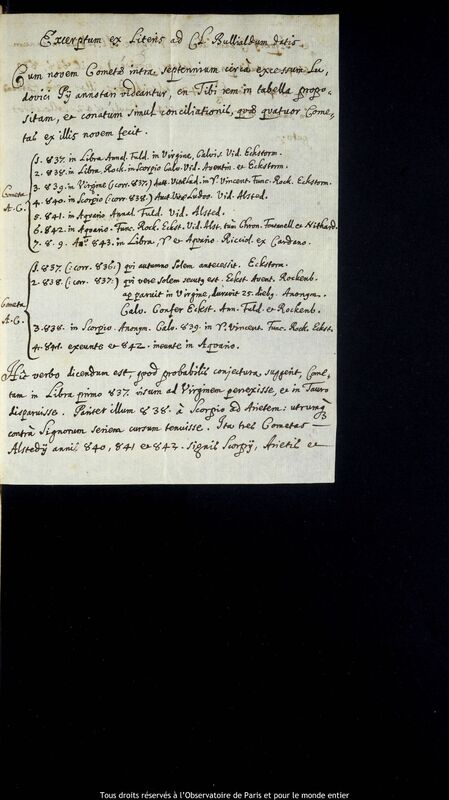 Excerptum ex Literis ad Cl. Bullialdum datis
Cum novem Cometæ intra septennium circa excessum Lu-
dovici Pij annotari videantur, en Tibi rem in tabella propo-
sitam, et conatum simul conciliationis, quæ quatuor Come-
tas ex illis novem fecit.
1. 837. in Libra Annal. Fuld. in Virgine, Calvis. Vid. Eckstorm.
2. 838. in Libra. Rock. in Scorpio Calv. Vid. Aventin. et Eckstorm.
3. 839. in Virgine (:corr. 837.) Aut. Vit. Lud. in ♈ Vincent. Func. Rock. Eckstorm.
Cometa
A. C.
4. 840. in Scorpio (:corr. 838.) Aut. Vitæ Ludov. Vid. Alsted.
5. 841. in Aquario Annal. Fuld. Vid. Alsted.
6. 842. in Aquario. Func. Rock. Eckst. Vid. Alst. tum Chron. Fontanell. et Nithard.
7. 8. 9. An. 843. in Libra, ♈ et Aquario. Ricciol. ex Cardano.
1. 837. (:corr. 836.) qui autumno Solem antecessit. Eckstorm.
2. 838. (:corr. 837.) qui vere Solem secutus est. Eckst. Avent. Rockenb.
apparuit in Virgine, duravit 25. dieb. Anonym.
Cometa
A. C.
Calv. Confer Eckst. Ann. Fuld. et Rockenb.
3. 838. in Scorpio Anonym. Calv. 839. in ♈ Vincent. Func. Rock. Eckst.
4. 841. exeunte et 842. ineunte in Aquario.
Hic verbo dicendum est, quod probabilis conjectura suggerit, Come-
tam in Libra primo 837. visum ad Virginem perexisse, et in Tauro
disparuisse. Pariter illum 838. à Scorpio ad Arietem: utrumq
contra Signorum seriem cursum tenuisse. Ita tres Cometas
Alstedij annis 840, 841 et 842. signis Scorpij, Arietis et
Tous droits réservés à l'Observatoire de Paris et pour le monde entier